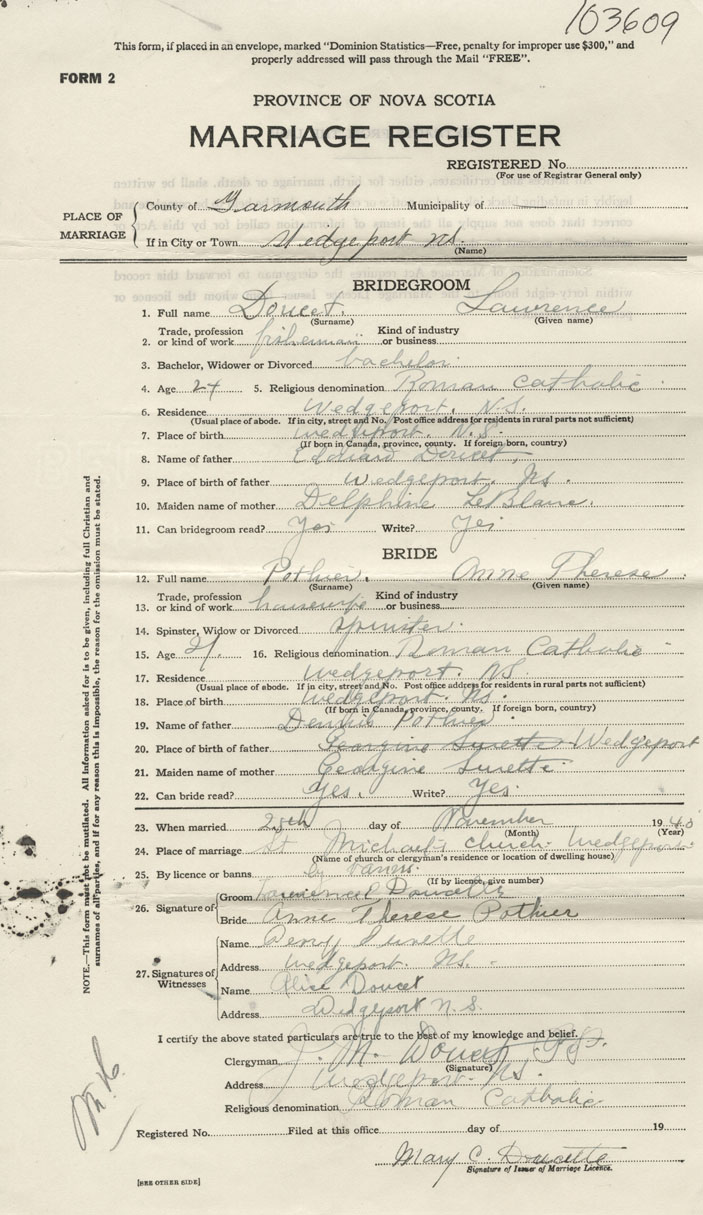 103609
This form, if placed in an envelope, marked "Dominion Statistics—Free, penalty for improper use $300," and
properly addressed will pass through the Mail "FREE".
FORM 2
PROVINCE OF NOVA SCOTIA
MARRIAGE REGISTER
REGISTERED No.
(For use of Registrar General only)
PLACE OF MARRIAGE
County of Yarmouth Municipality of
If in City or Town Wedgeport NS.
(Name)
BRIDEGROOM
1. Full name Doucet. Lawrence
(Surname) (Given name)
2. Trade, profession or kind of work fisherman Kind of industry or business
3. Bachelor, Widower or Divorced bachelor
4. Age 24 5. Religious denomination Roman Catholic
6. Residence Wedgeport. N.S.
(Usual place of abode. If in city, street and No. Post office address for residents in rural parts not sufficient)
7. Place of birth Wedgeport. N.S.
(If born in Canada, province, county. If foreign born, country)
8. Name of father Edouard Doucet
9. Place of birth of father Wedgeport. Ns.
10. Maiden name of mother Delphine LeBlanc.
11. Can bridegroom read? Yes Write? Yes
BRIDE
12. Full name Pothier. Anne Therese
(Surname) (Given name)
13. Trade, profession or kind of work housewife Kind of industry or business
14. Spinster, Widow or Divorced spinster.
15. Age 21. 16. Religious denomination Roman Catholic
17. Residence Wedgeport. NS
(Usual place of abode. If in city, street and No. Post office address for residents in rural parts not sufficient)
18. Place of birth Wedgeport Ns.
(If born in Canada, province, county. If foreign born, country)
19. Name of father Pothier
20. Place of birth of father Georgine Surette Wedgeport
21. Maiden name of mother Georgine Surette.
22. Can bride read? Yes. Write? Yes.
23. When married 28th day of November 1940
(Month) (Year)
24. Place of marriage St Michael's church. Wedgeport.
(Name of church or clergyman's residence or location of dwelling house)
25. By licence or banns by banns.
(If by licence, give number)
26. Signature of
Groom Doucette
Bride Anne Therese Pothier
27. Signatures of Witnesses
Name Surette
Address Wedgeport. Ns.
Name Alice Doucet
Address Wedgeport N.S.
I certify the above stated particulars are true to the best of my knowledge and belief.
Clergyman J. M. Doucet
(Signature)
Address Wedgeport. Ns.
Religious denomination Roman Catholic
Registered No. Filed at this office day of 19
Mary C. Doucette
Signature of Issuer of Marriage Licence.
[SEE OTHER SIDE]
NOTE.—This form must not be mutilated. All information asked for is to be given, including full Christian and
surnames of all parties, and if for any reason this is impossible, the reason for the omission must be stated.